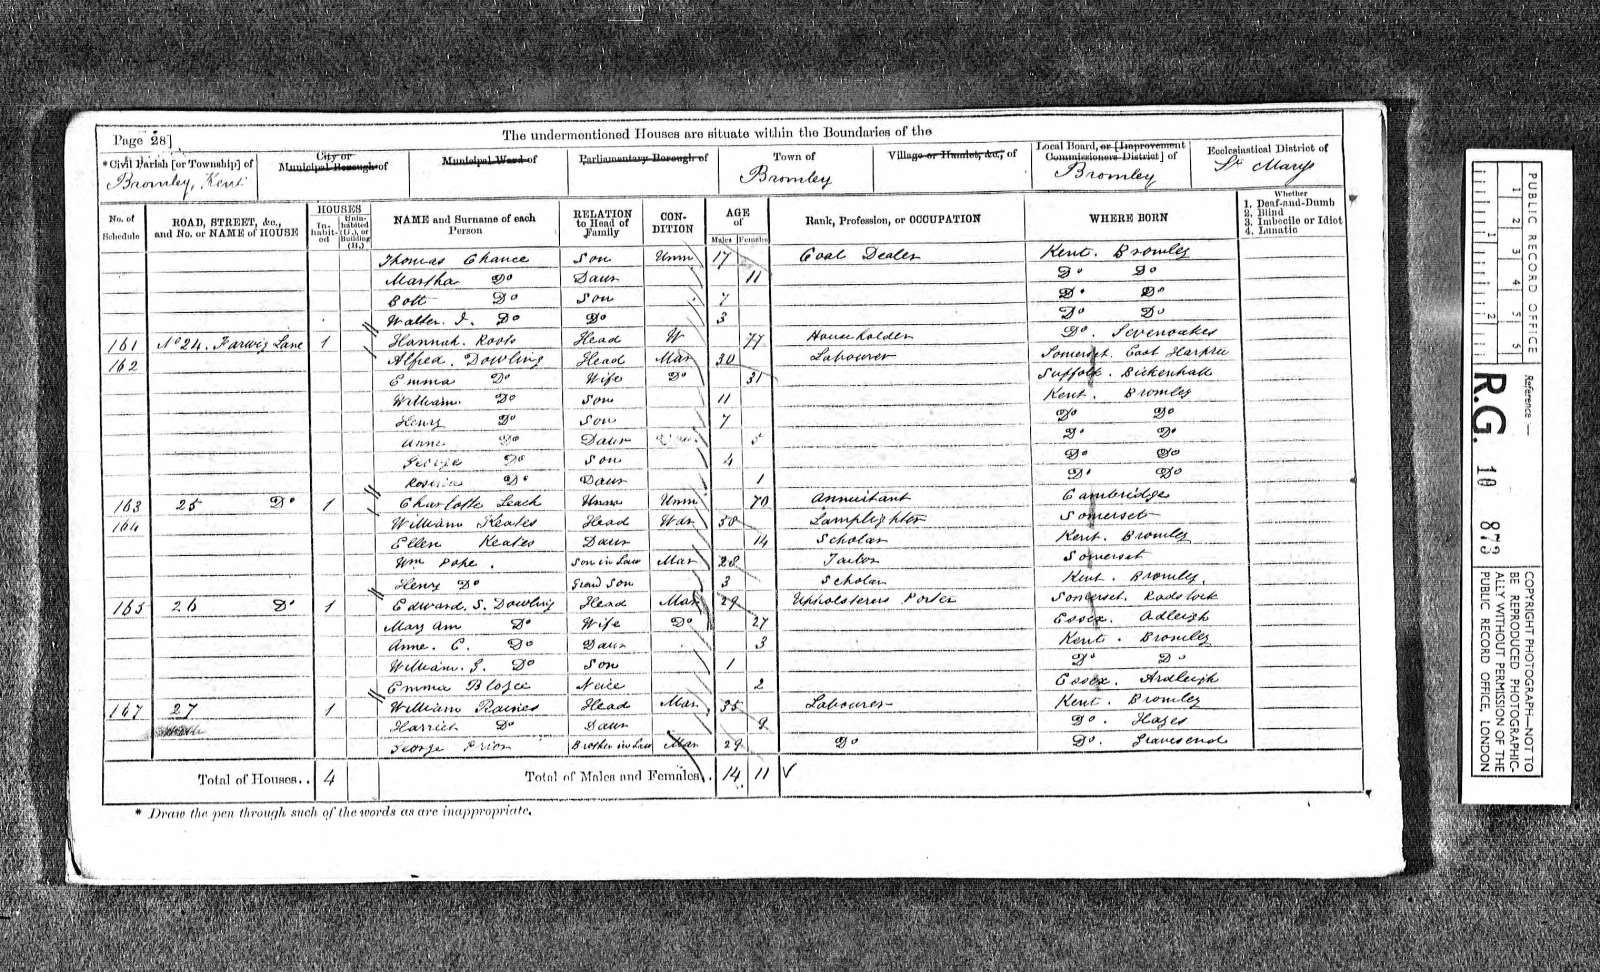 Page 28]
The undermentioned Houses are situate within the Boundaries of the
*Civil Parish [or Township] of
Bromley, Kent
City or
Municipal Borough of
Municipal Ward of
Parliamentary Borough of
Town of
Bromley
Village or Hamlet, &c., of
Local Board, or [Improvement
Commissioners District] of
Bromley
Ecclesiastical District of
St Marys
No. of Schedule
ROAD, STREET, &c., and No. or NAME of HOUSE
HOUSES
Inhabited
Uninhabited (U.), or Building (B.)
NAME and Surname of each Person
RELATION to Head of Family
CONDITION
AGE of
Males Females
Rank, Profession, or OCCUPATION
WHERE BORN
Whether
1. Deaf-and-Dumb
2. Blind
3. Imbecile or Idiot
4. Lunatic
Thomas Chance Son Unm 17 Coal Dealer Kent. Bromley
Martha Do Daur 11 Do Do
Bott Do Son 7 Do Do
Walter. J. Do Do 3 Do Do
161 No 24. Farwig Lane 1 Hannah. Roots Head W 77 Householder Do. Sevenoakes
162 Alfred. Dowling Head Mar 30 Labourer Somerset. East Harptree
Emma Do Wife Do 31 Suffolk.
William. Do Son 11 Kent. Bromley
Henry Do Son 7 Do Do
Anne Do Daur 5 Do Do
George Do Son 4 Do Do
Rosina Do Daur 1 Do Do
163 25 Do 1 Charlotte Leach Unm 70 Annuitant Cambridge
164 William Keates Head 50 Lamplighter Somerset
Ellen Keates Daur 14 Scholar Kent. Bromley
Wm Pope. Son in Law Mar 28 Tailor Somerset
Henry Do Grand Son 3 Scholar Kent. Bromley.
165 26 Do 1 Edward. S. Dowling Head Mar 29 Upholsterers Porter Somerset. Radstock
Mary Ann Do Wife Do 27 Essex. Adleigh
Anne. E. Do Daur 3 Kent. Bromley
William. G. Do Son 1 Do Do
Emma Neice 2 Essex. Ardleigh
167 27 1 William Raines Head Mar 35 Labourer Kent. Bromley
Harriet Do Daur 9 Do. Hayes
George Prior Brother in Law Mar 29 Do Do. Gravesend
Total of Houses.. 4
Total of Males and Females.. 14 11
* Draw the pen through such of the words as are inappropriate.
PUBLIC RECORD OFFICE
1 2 3 4 5 6
1 2
Reference:—
R.G. 10 873
COPYRIGHT PHOTOGRAPH—NOT TO
BE REPRODUCED PHOTOGRAPHIC-
ALLY WITHOUT PERMISSION OF THE
PUBLIC RECORD OFFICE, LONDON